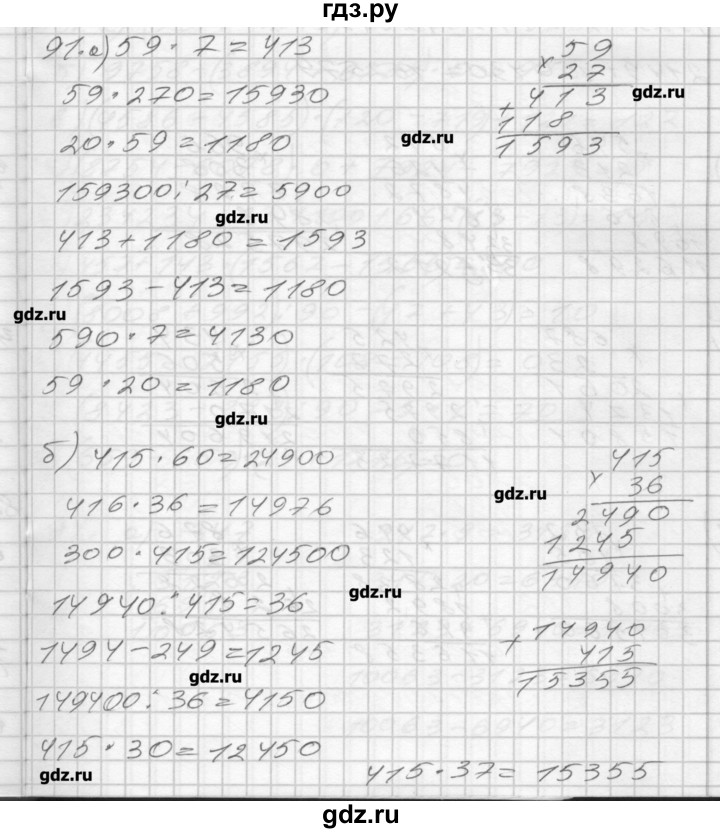 гдз.ру
91.а) 59 · 7 = 413
59 · 270 = 15930
20 · 59 = 1180
159300 : 27 = 5900
413 + 1180 = 1593
1593 - 413 = 1180
590 · 7 = 4130
59 · 20 = 1180
59
× 27
413
+
118
1593
gdz.ru
gdz.ru
gdz.ru
gdz.ru
gdz.ru
б) 415 · 60 = 24900
416 · 36 = 14976
300 · 415 = 124500
14940 : 415 = 36
1494 - 249 = 1245
149400 : 36 = 4150
415 · 30 = 12450
415
× 36
2490
1245
14940
+ 14940
415
15355
415 · 37 = 15355
gdz.ru
gdz.ru
gdz.ru
gdz.ru
gdz.ru